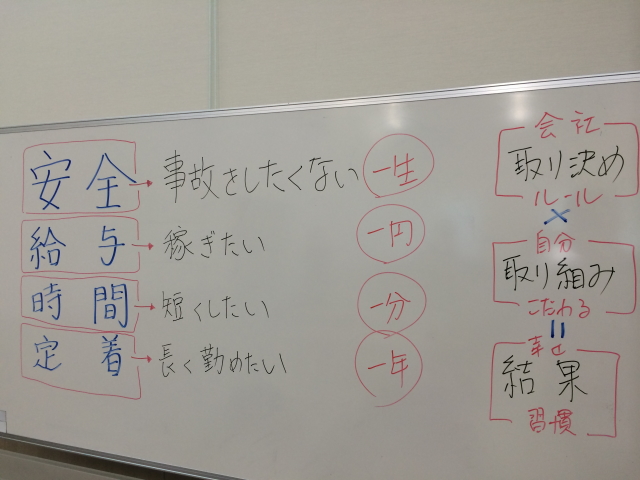 安全 → 事故をしたくない 一生
給与 → 稼ぎたい 一円
時間 → 短くしたい 一分
定着 → 長く勤めたい 一年
会社
取り決め
ルール
×
自分
取り組み
こだわる
=
幸せ
結果
習慣